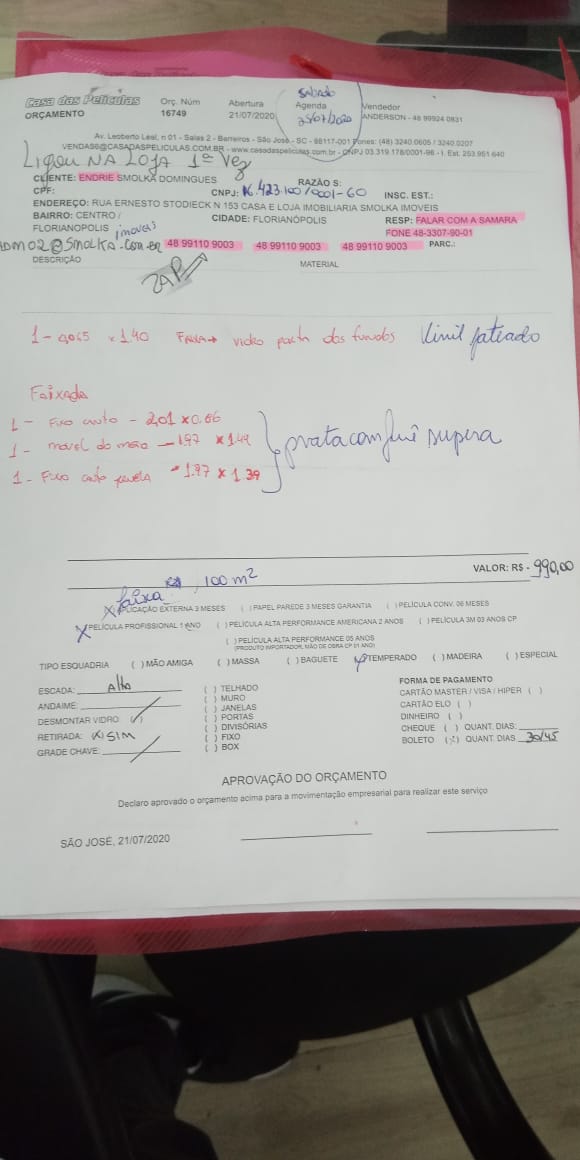 Casa das Películas
ORÇAMENTO
Orç. Núm
16749
Abertura
21/07/2020
Sabado
Agenda
25/07/2020
Vendedor
ANDERSON - 48 99924 0831
Av. Leoberto Leal, n 01 - Salas 2 - Barreiros - São José - SC - 88117-001 Fones: (48) 3240.0605 / 3240.0207
VENDAS6@CASADASPELICULAS.COM.BR - www.casadaspeliculas.com.br - CNPJ 03.319.178/0001-96 - I. Est. 253.951.640
Ligou NA LOJA 1ª Vez
CLIENTE: ENDRIE SMOLKA DOMINGUES
RAZÃO S:
CPF:
CNPJ: 16.423.100/0001-60
INSC. EST.:
ENDEREÇO: RUA ERNESTO STODIECK N 153 CASA E LOJA IMOBILIARIA SMOLKA IMOVEIS
BAIRRO: CENTRO /
FLORIANOPOLIS imoveis
CIDADE: FLORIANÓPOLIS
RESP: FALAR COM A SAMARA
FONE 48-3307-90-01
ADM02@Smolka.com.br 48 99110 9003 48 99110 9003 48 99110 9003 PARC.:
DESCRIÇÃO
MATERIAL
ZAP
1 - 0,065 x 1.40 FAIXA vidro porta dos fundos Vinil jateado
Faixada
1 - Fixo canto - 2,01 x 0,66
1 - movel do meio - 1.97 x 1.49
1 - Fixo canto janela - 1.97 x 1.39
prata com supera
VALOR: R$ - 990,00
faixa 100 m²
(X) APLICAÇÃO EXTERNA 3 MESES ( ) PAPEL PAREDE 3 MESES GARANTIA ( ) PELÍCULA CONV. 06 MESES
X PELÍCULA PROFISSIONAL 1 ANO ( ) PELÍCULA ALTA PERFORMANCE AMERICANA 2 ANOS ( ) PELÍCULA 3M 03 ANOS CP
( ) PELÍCULA ALTA PERFORMANCE 05 ANOS
(PRODUTO IMPORTADOR, MÃO DE OBRA CP 01 ANO)
TIPO ESQUADRIA ( ) MÃO AMIGA ( ) MASSA ( ) BAGUETE (X) TEMPERADO ( ) MADEIRA ( ) ESPECIAL
ESCADA: Alta
ANDAIME:
DESMONTAR VIDRO:
RETIRADA: (X) SIM
GRADE CHAVE:
( ) TELHADO
( ) MURO
( ) JANELAS
( ) PORTAS
( ) DIVISÓRIAS
( ) FIXO
( ) BOX
FORMA DE PAGAMENTO
CARTÃO MASTER / VISA / HIPER ( )
CARTÃO ELO ( )
DINHEIRO ( )
CHEQUE ( ) QUANT. DIAS:
BOLETO (X) QUANT. DIAS 30/45
APROVAÇÃO DO ORÇAMENTO
Declaro aprovado o orçamento acima para a movimentação empresarial para realizar este serviço
SÃO JOSÉ, 21/07/2020